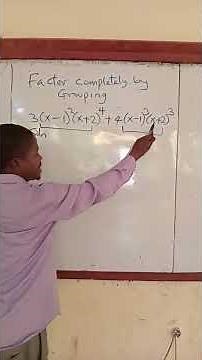 Factor completely by
Grouping
3(x-1)²(x+2)⁴+4(x-1)³(x+2)³